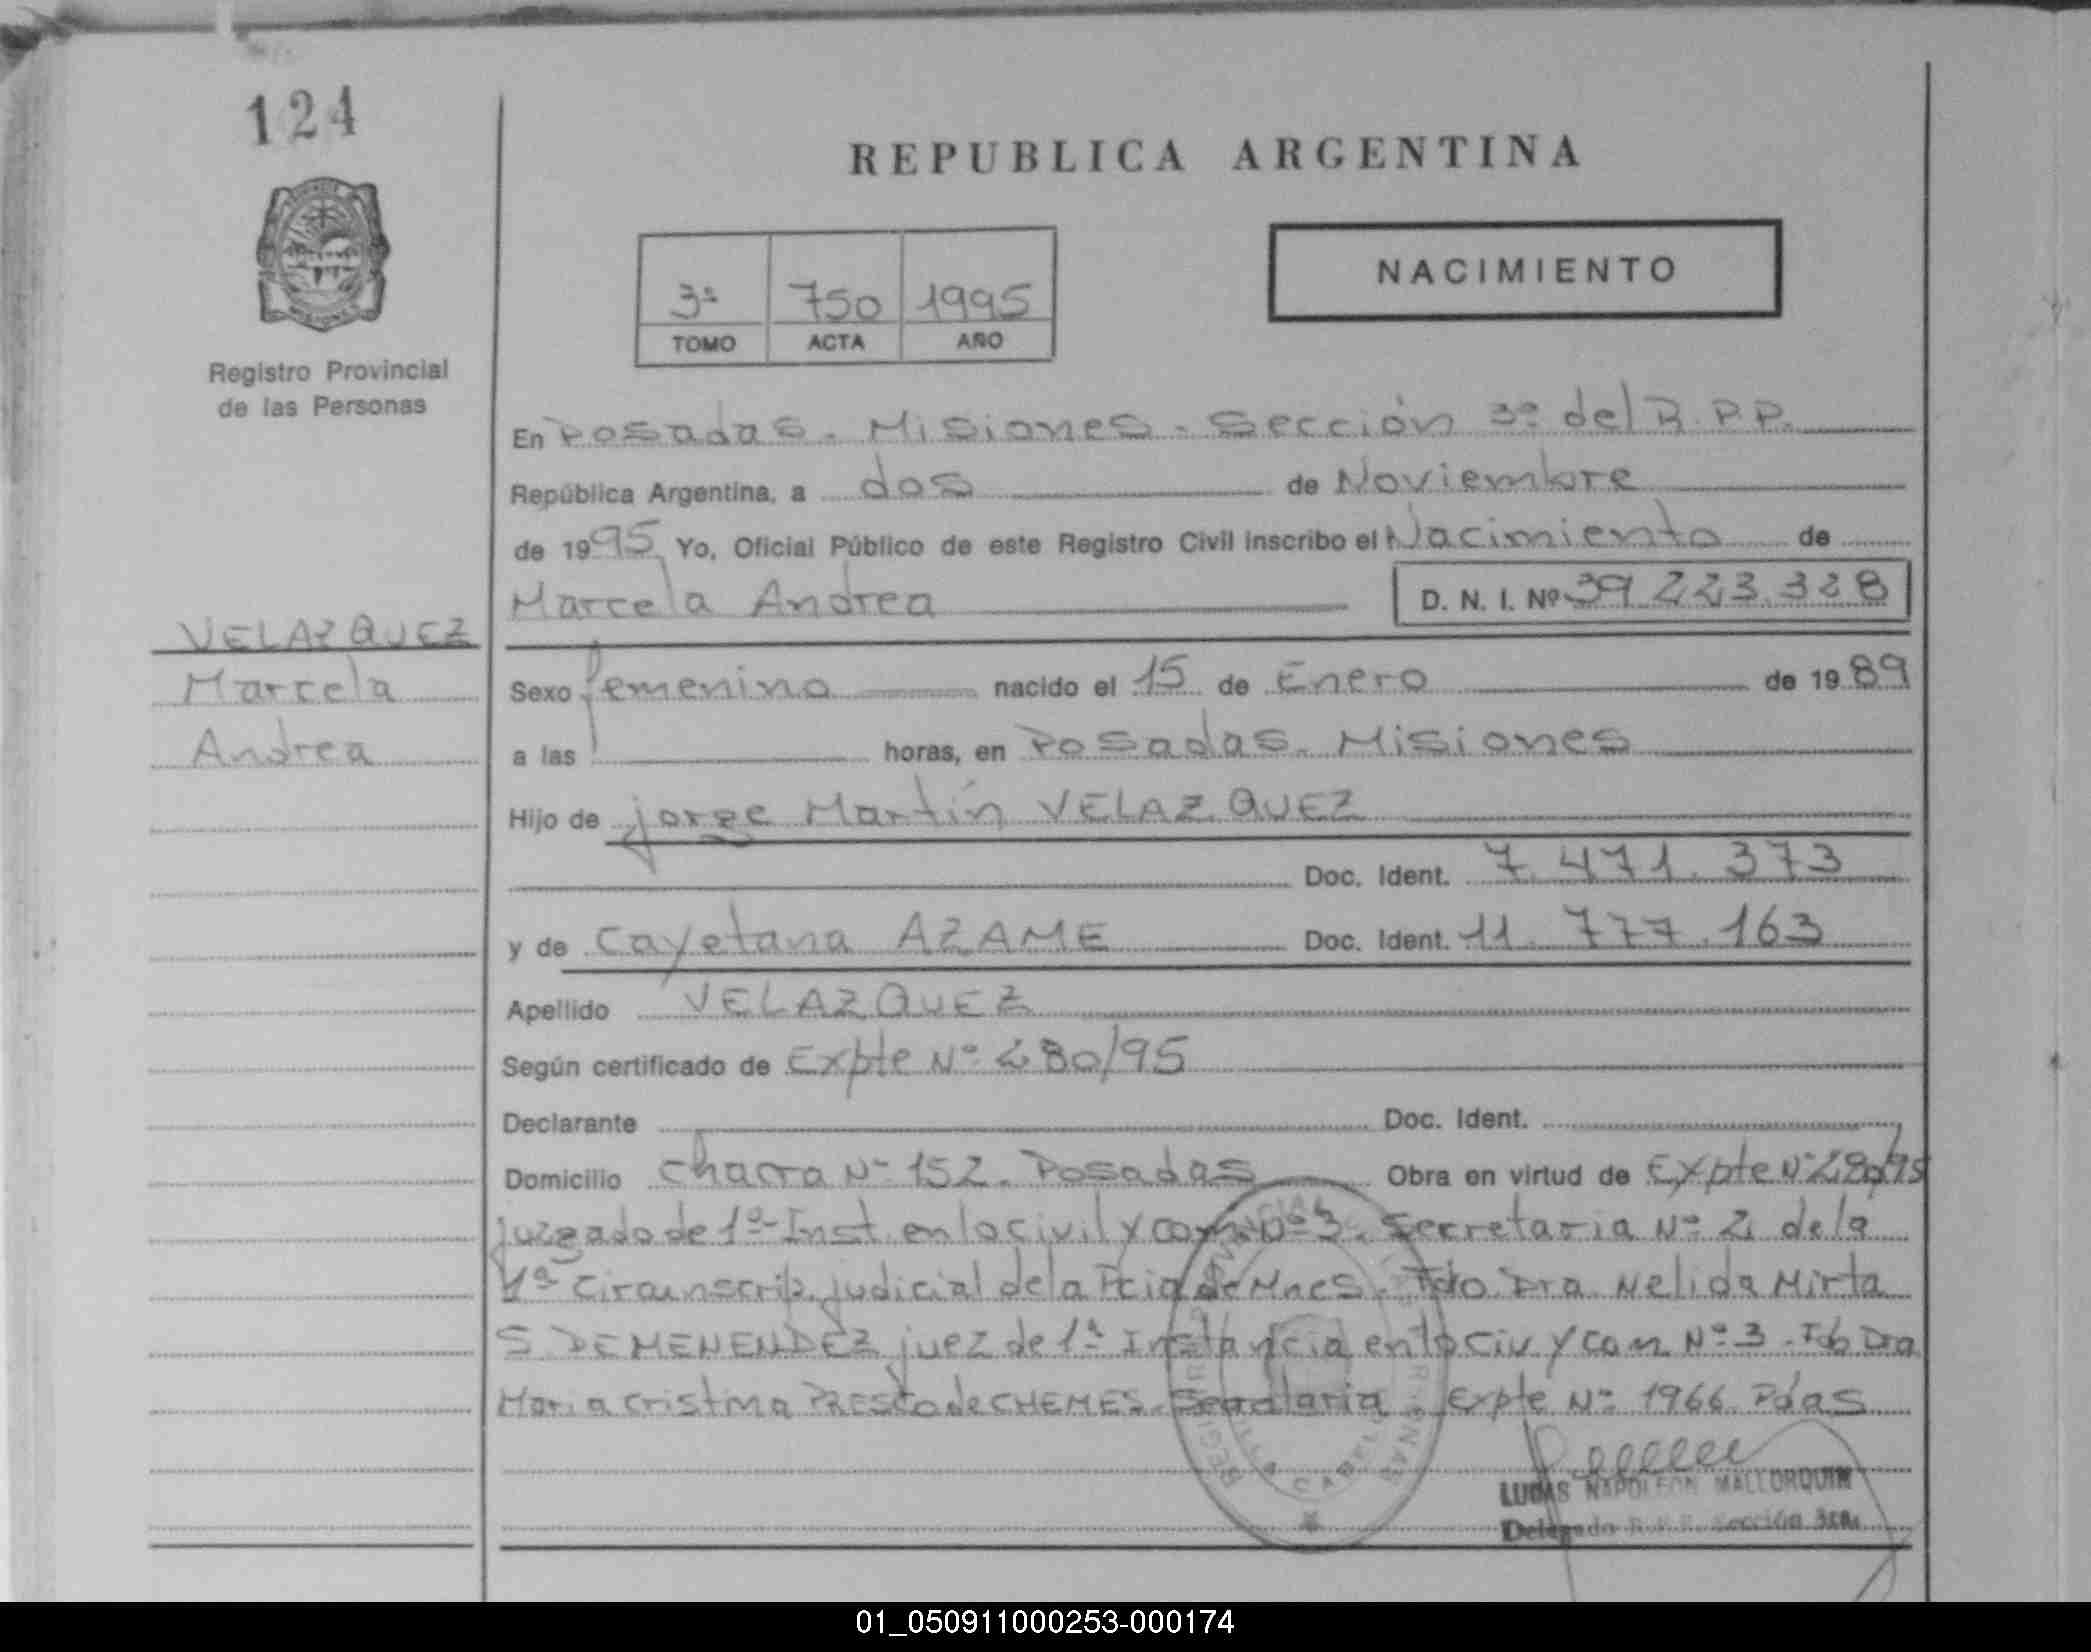 124
REPUBLICA ARGENTINA
NACIMIENTO
3º 750 1995
TOMO ACTA AÑO
Registro Provincial
de las Personas
En Posadas - Misiones - Sección 3º del R.P.P.
República Argentina, a dos de Noviembre
de 1995 Yo, Oficial Público de este Registro Civil inscribo el Nacimiento de
Marcela Andrea D. N. I. Nº 39.223.328
VELAZQUEZ
Marcela
Andrea
Sexo femenino nacido el 15 de Enero de 1989
a las horas, en Posadas - Misiones
Hijo de Jorge Martín VELAZQUEZ
Doc. Ident. 7.471.373
y de Cayetana AZAME Doc. Ident. 11.777.163
Apellido VELAZQUEZ
Según certificado de Expte Nº 280/95
Declarante Doc. Ident.
Domicilio Chacra Nº 152. Posadas Obra en virtud de Expte Nº 280/95
juzgado de 1º Inst. en lo civil y com. Nº 3. Secretaria Nº 2 de la
1ª Circunscrip. judicial de la Pcia de Mnes. Fdo. Dra. Nelida Mirta
S. DE MENENDEZ juez de 1ª Instancia en lo Civ y Com Nº 3 - Fdo Dra
Maria Cristina PRESTO de CHEMES. Secretaria. Expte Nº 1966 Pdas
LUCAS NAPOLEON MALLORQUIN
Delegado R.P.P. Sección 3ra.
01_050911000253-000174